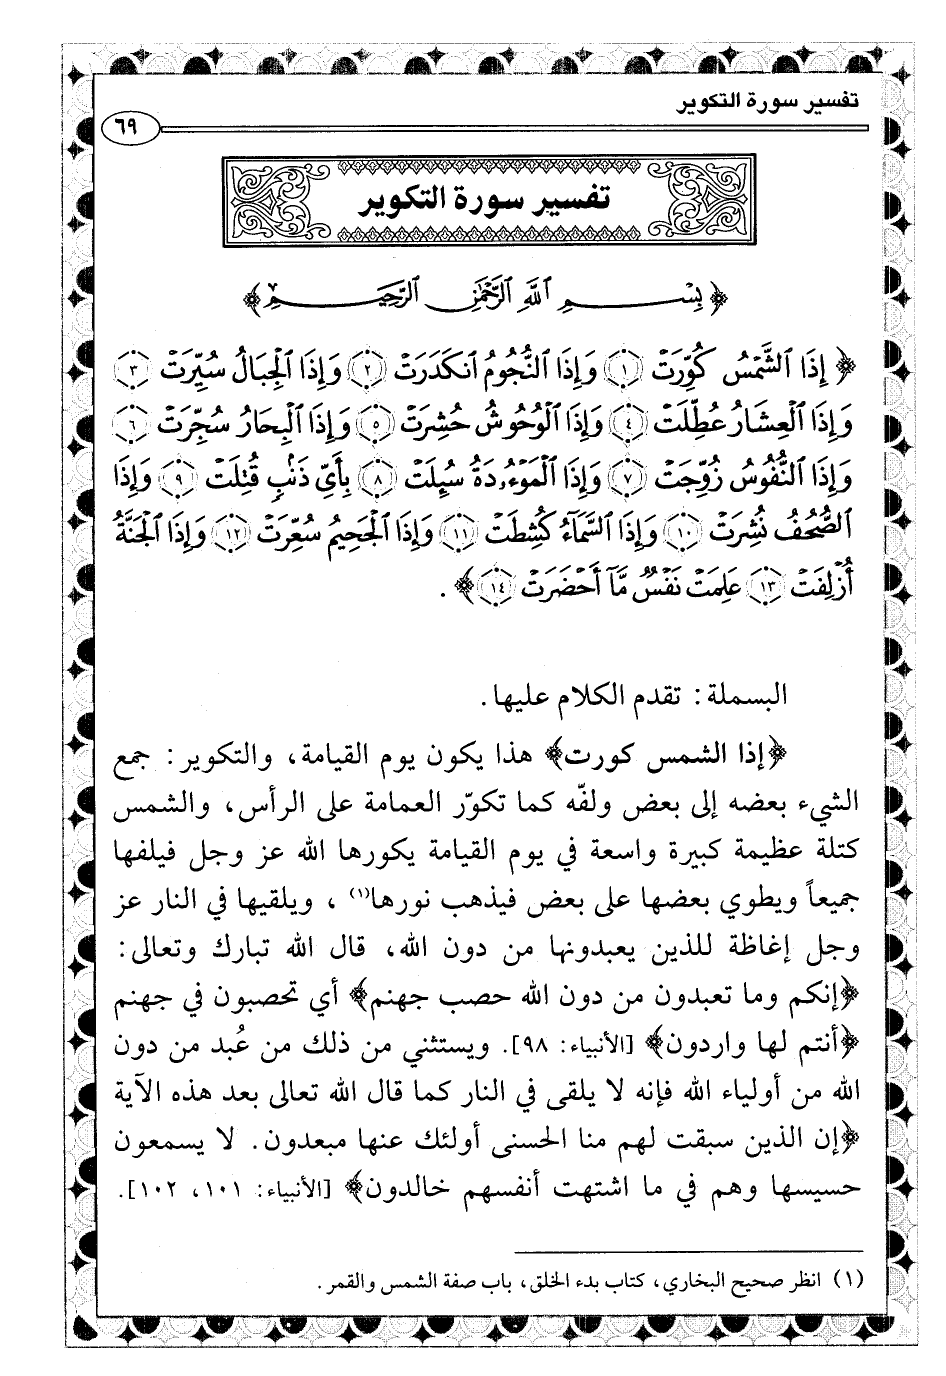 تفسير سورة التكوير
٦٩
تفسير سورة التكوير
﴿بِسْمِ ٱللَّهِ ٱلرَّحْمَٰنِ ٱلرَّحِيمِ﴾
﴿إِذَا ٱلشَّمْسُ كُوِّرَتْ ١ وَإِذَا ٱلنُّجُومُ ٱنكَدَرَتْ ٢ وَإِذَا ٱلْجِبَالُ سُيِّرَتْ ٣
وَإِذَا ٱلْعِشَارُ عُطِّلَتْ ٤ وَإِذَا ٱلْوُحُوشُ حُشِرَتْ ٥ وَإِذَا ٱلْبِحَارُ سُجِّرَتْ ٦
وَإِذَا ٱلنُّفُوسُ زُوِّجَتْ ٧ وَإِذَا ٱلْمَوْءُۥدَةُ سُئِلَتْ ٨ بِأَيِّ ذَنۢبٍ قُتِلَتْ ٩ وَإِذَا
ٱلصُّحُفُ نُشِرَتْ ١٠ وَإِذَا ٱلسَّمَآءُ كُشِطَتْ ١١ وَإِذَا ٱلْجَحِيمُ سُعِّرَتْ ١٢ وَإِذَا ٱلْجَنَّةُ
أُزْلِفَتْ ١٣ عَلِمَتْ نَفْسٌ مَّآ أَحْضَرَتْ ١٤﴾.
البسملة: تقدم الكلام عليها.
﴿إذا الشمس كورت﴾ هذا يكون يوم القيامة، والتكوير: جمع
الشيء بعضه إلى بعض ولفّه كما تكوّر العمامة على الرأس، والشمس
كتلة عظيمة كبيرة واسعة في يوم القيامة يكورها الله عز وجل فيلفها
جميعاً ويطوي بعضها على بعض فيذهب نورها(١)، ويلقيها في النار عز
وجل إغاظة للذين يعبدونها من دون الله، قال الله تبارك وتعالى:
﴿إنكم وما تعبدون من دون الله حصب جهنم﴾ أي تحصبون في جهنم
﴿أنتم لها واردون﴾ [الأنبياء: ٩٨]. ويستثني من ذلك من عُبد من دون
الله من أولياء الله فإنه لا يلقى في النار كما قال الله تعالى بعد هذه الآية
﴿إن الذين سبقت لهم منا الحسنى أولئك عنها مبعدون. لا يسمعون
حسيسها وهم في ما اشتهت أنفسهم خالدون﴾ [الأنبياء: ١٠١، ١٠٢].
(١) انظر صحيح البخاري، كتاب بدء الخلق، باب صفة الشمس والقمر.